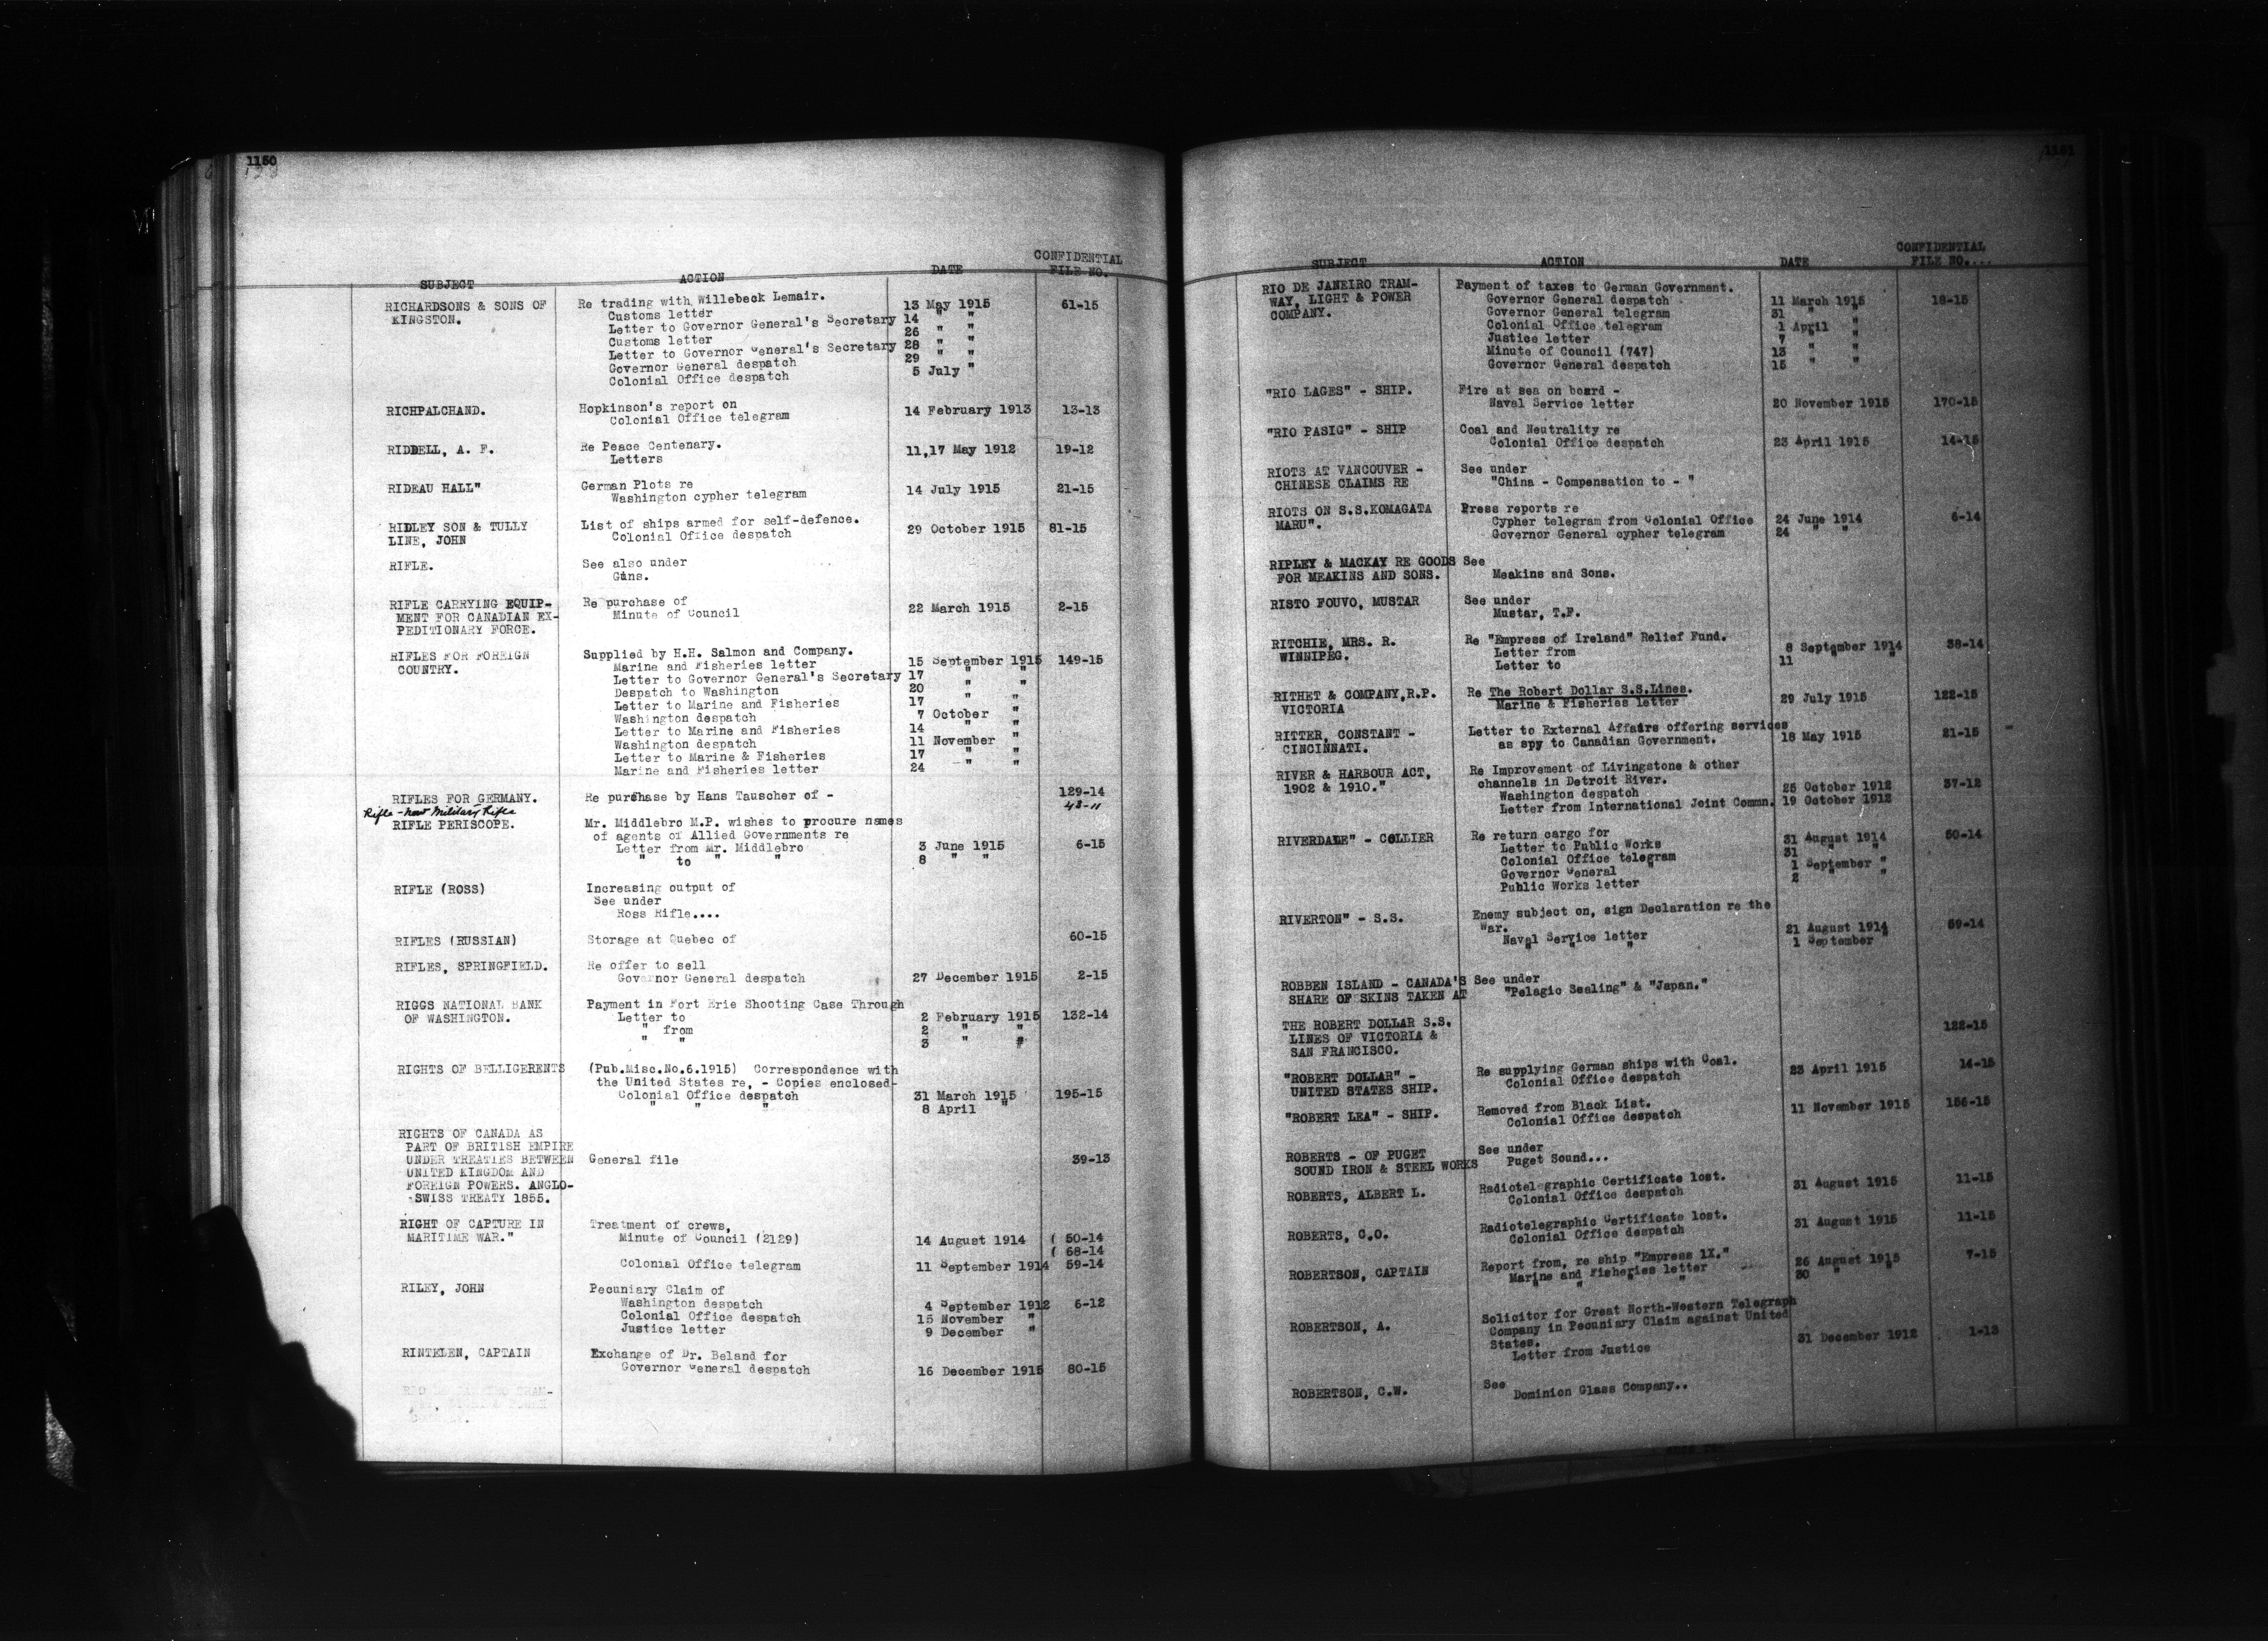 1150
SUBJECT ACTION DATE CONFIDENTIAL FILE NO.
RICHARDSONS & SONS OF Re trading with Willebeck Lemair.
KINGSTON. Customs letter 13 May 1915 61-15
Letter to Governor General's Secretary 14 " "
Customs letter 26 " "
Letter to Governor General's Secretary 28 " "
Governor General despatch 29 " "
Colonial Office despatch 5 July "
RICHPALCHAND. Hopkinson's report on
Colonial Office telegram 14 February 1913 13-13
RIDDELL, A. F. Re Peace Centenary.
Letters 11,17 May 1912 19-12
RIDEAU HALL" German Plots re
Washington cypher telegram 14 July 1915 21-15
RIDLEY SON & TULLY List of ships armed for self-defence.
LINE, JOHN Colonial Office despatch 29 October 1915 81-15
RIFLE. See also under
Guns.
RIFLE CARRYING EQUIP- Re purchase of
MENT FOR CANADIAN EX- Minute of Council 22 March 1915 2-15
PEDITIONARY FORCE.
RIFLES FOR FOREIGN Supplied by H.H. Salmon and Company.
COUNTRY. Marine and Fisheries letter 15 September 1915 149-15
Letter to Governor General's Secretary 17 " "
Despatch to Washington 20 " "
Letter to Marine and Fisheries 17 " "
Washington despatch 7 October "
Letter to Marine and Fisheries 14 " "
Washington despatch 11 November "
Letter to Marine & Fisheries 17 " "
Marine and Fisheries letter 24 " "
RIFLES FOR GERMANY. Re purchase by Hans Tauscher of - 129-14
Rifle - new Military Rifle 43-11
RIFLE PERISCOPE. Mr. Middlebro M.P. wishes to procure names
of agents of Allied Governments re
Letter from Mr. Middlebro 3 June 1915 6-15
" to " " 8 " "
RIFLE (ROSS) Increasing output of
See under
Ross Rifle....
RIFLES (RUSSIAN) Storage at Quebec of 60-15
RIFLES, SPRINGFIELD. Re offer to sell
Governor General despatch 27 December 1915 2-15
RIGGS NATIONAL BANK Payment in Fort Erie Shooting Case Through
OF WASHINGTON. Letter to 2 February 1915 132-14
" from 2 " "
" " 3 " "
RIGHTS OF BELLIGERENTS (Pub.Misc.No.6.1915) Correspondence with
the United States re, - Copies enclosed-
Colonial Office despatch 31 March 1915 195-15
" " " 8 April "
RIGHTS OF CANADA AS
PART OF BRITISH EMPIRE
UNDER TREATIES BETWEEN General file 39-13
UNITED KINGDOM AND
FOREIGN POWERS. ANGLO-
-SWISS TREATY 1855.
RIGHT OF CAPTURE IN Treatment of crews,
MARITIME WAR." Minute of Council (2129) 14 August 1914 ( 50-14
( 68-14
Colonial Office telegram 11 September 1914 59-14
RILEY, JOHN Pecuniary Claim of
Washington despatch 4 September 1912 6-12
Colonial Office despatch 15 November "
Justice letter 9 December "
RINTELEN, CAPTAIN Exchange of Dr. Beland for
Governor General despatch 16 December 1915 80-15
1151
SUBJECT ACTION DATE CONFIDENTIAL FILE NO....
RIO DE JANEIRO TRAM- Payment of taxes to German Government.
WAY, LIGHT & POWER Governor General despatch 11 March 1915 18-15
COMPANY. Governor General telegram 31 " "
Colonial Office telegram 1 April "
Justice letter 7 " "
Minute of Council (747) 13 " "
Governor General despatch 15 " "
"RIO LAGES" - SHIP. Fire at sea on board -
Naval Service letter 20 November 1915 170-15
"RIO PASIG" - SHIP Coal and Neutrality re
Colonial Office despatch 23 April 1915 14-15
RIOTS AT VANCOUVER - See under
CHINESE CLAIMS RE "China - Compensation to - "
RIOTS ON S.S.KOMAGATA Press reports re
MARU". Cypher telegram from Colonial Office 24 June 1914 6-14
Governor General cypher telegram 24 " "
RIPLEY & MACKAY RE GOODS See
FOR MEAKINS AND SONS. Meakins and Sons.
RISTO FOUVO, MUSTAR See under
Mustar, T.F.
RITCHIE, MRS. R. Re "Empress of Ireland" Relief Fund.
WINNIPEG. Letter from 8 September 1914 38-14
Letter to 11 " "
RITHET & COMPANY,R.P. Re The Robert Dollar S.S.Lines.
VICTORIA Marine & Fisheries letter 29 July 1915 122-15
RITTER, CONSTANT - Letter to External Affairs offering services
CINCINNATI. as spy to Canadian Government. 18 May 1915 21-15
RIVER & HARBOUR ACT, Re Improvement of Livingstone & other
1902 & 1910." channels in Detroit River.
Washington despatch 25 October 1912 37-12
Letter from International Joint Commn. 19 October 1912
RIVERDALE" - COLLIER Re return cargo for
Letter to Public Works 31 August 1914 50-14
Colonial Office telegram 31 " "
Governor General " 1 September "
Public Works letter 2 " "
RIVERTON" - S.S. Enemy subject on, sign Declaration re the
War.
Naval Service letter 21 August 1914 59-14
" " " 1 September "
ROBBEN ISLAND - CANADA'S See under
SHARE OF SKINS TAKEN AT "Pelagic Sealing" & "Japan."
THE ROBERT DOLLAR S.S.
LINES OF VICTORIA & 122-15
SAN FRANCISCO.
"ROBERT DOLLAR" - Re supplying German ships with Coal.
UNITED STATES SHIP. Colonial Office despatch 23 April 1915 14-15
"ROBERT LEA" - SHIP. Removed from Black List.
Colonial Office despatch 11 November 1915 156-15
ROBERTS - OF PUGET See under
SOUND IRON & STEEL WORKS Puget Sound...
ROBERTS, ALBERT L. Radiotelegraphic Certificate lost.
Colonial Office despatch 31 August 1915 11-15
ROBERTS, C.O. Radiotelegraphic Certificate lost.
Colonial Office despatch 31 August 1915 11-15
ROBERTSON, CAPTAIN Report from, re ship "Empress 1X."
Marine and Fisheries letter 26 August 1915 7-15
" " " 30 " "
ROBERTSON, A. Solicitor for Great North-Western Telegraph
Company in Pecuniary Claim against United
States.
Letter from Justice 31 December 1912 1-13
ROBERTSON, C.W. See
Dominion Glass Company..